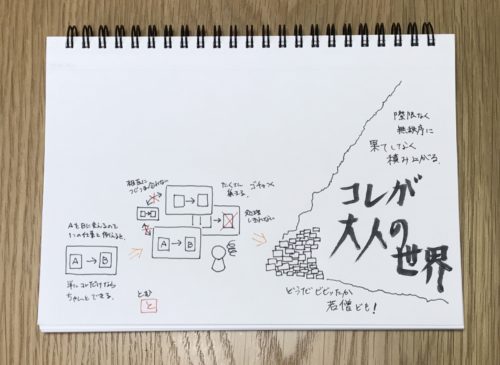 AをBに変えるのを
1つの仕事と例えると、
A → B
単にコレだけなら
ちゃんとできる。
相互に
つじつま合わない
たくさん
増える。
ゴチャつく
処理
しきれない
A → B
とむ
と
際限なく
無秩序に
果てしなく
積み上がる。
コレが
大人の
世界
どうだビビッたか
若僧ども!